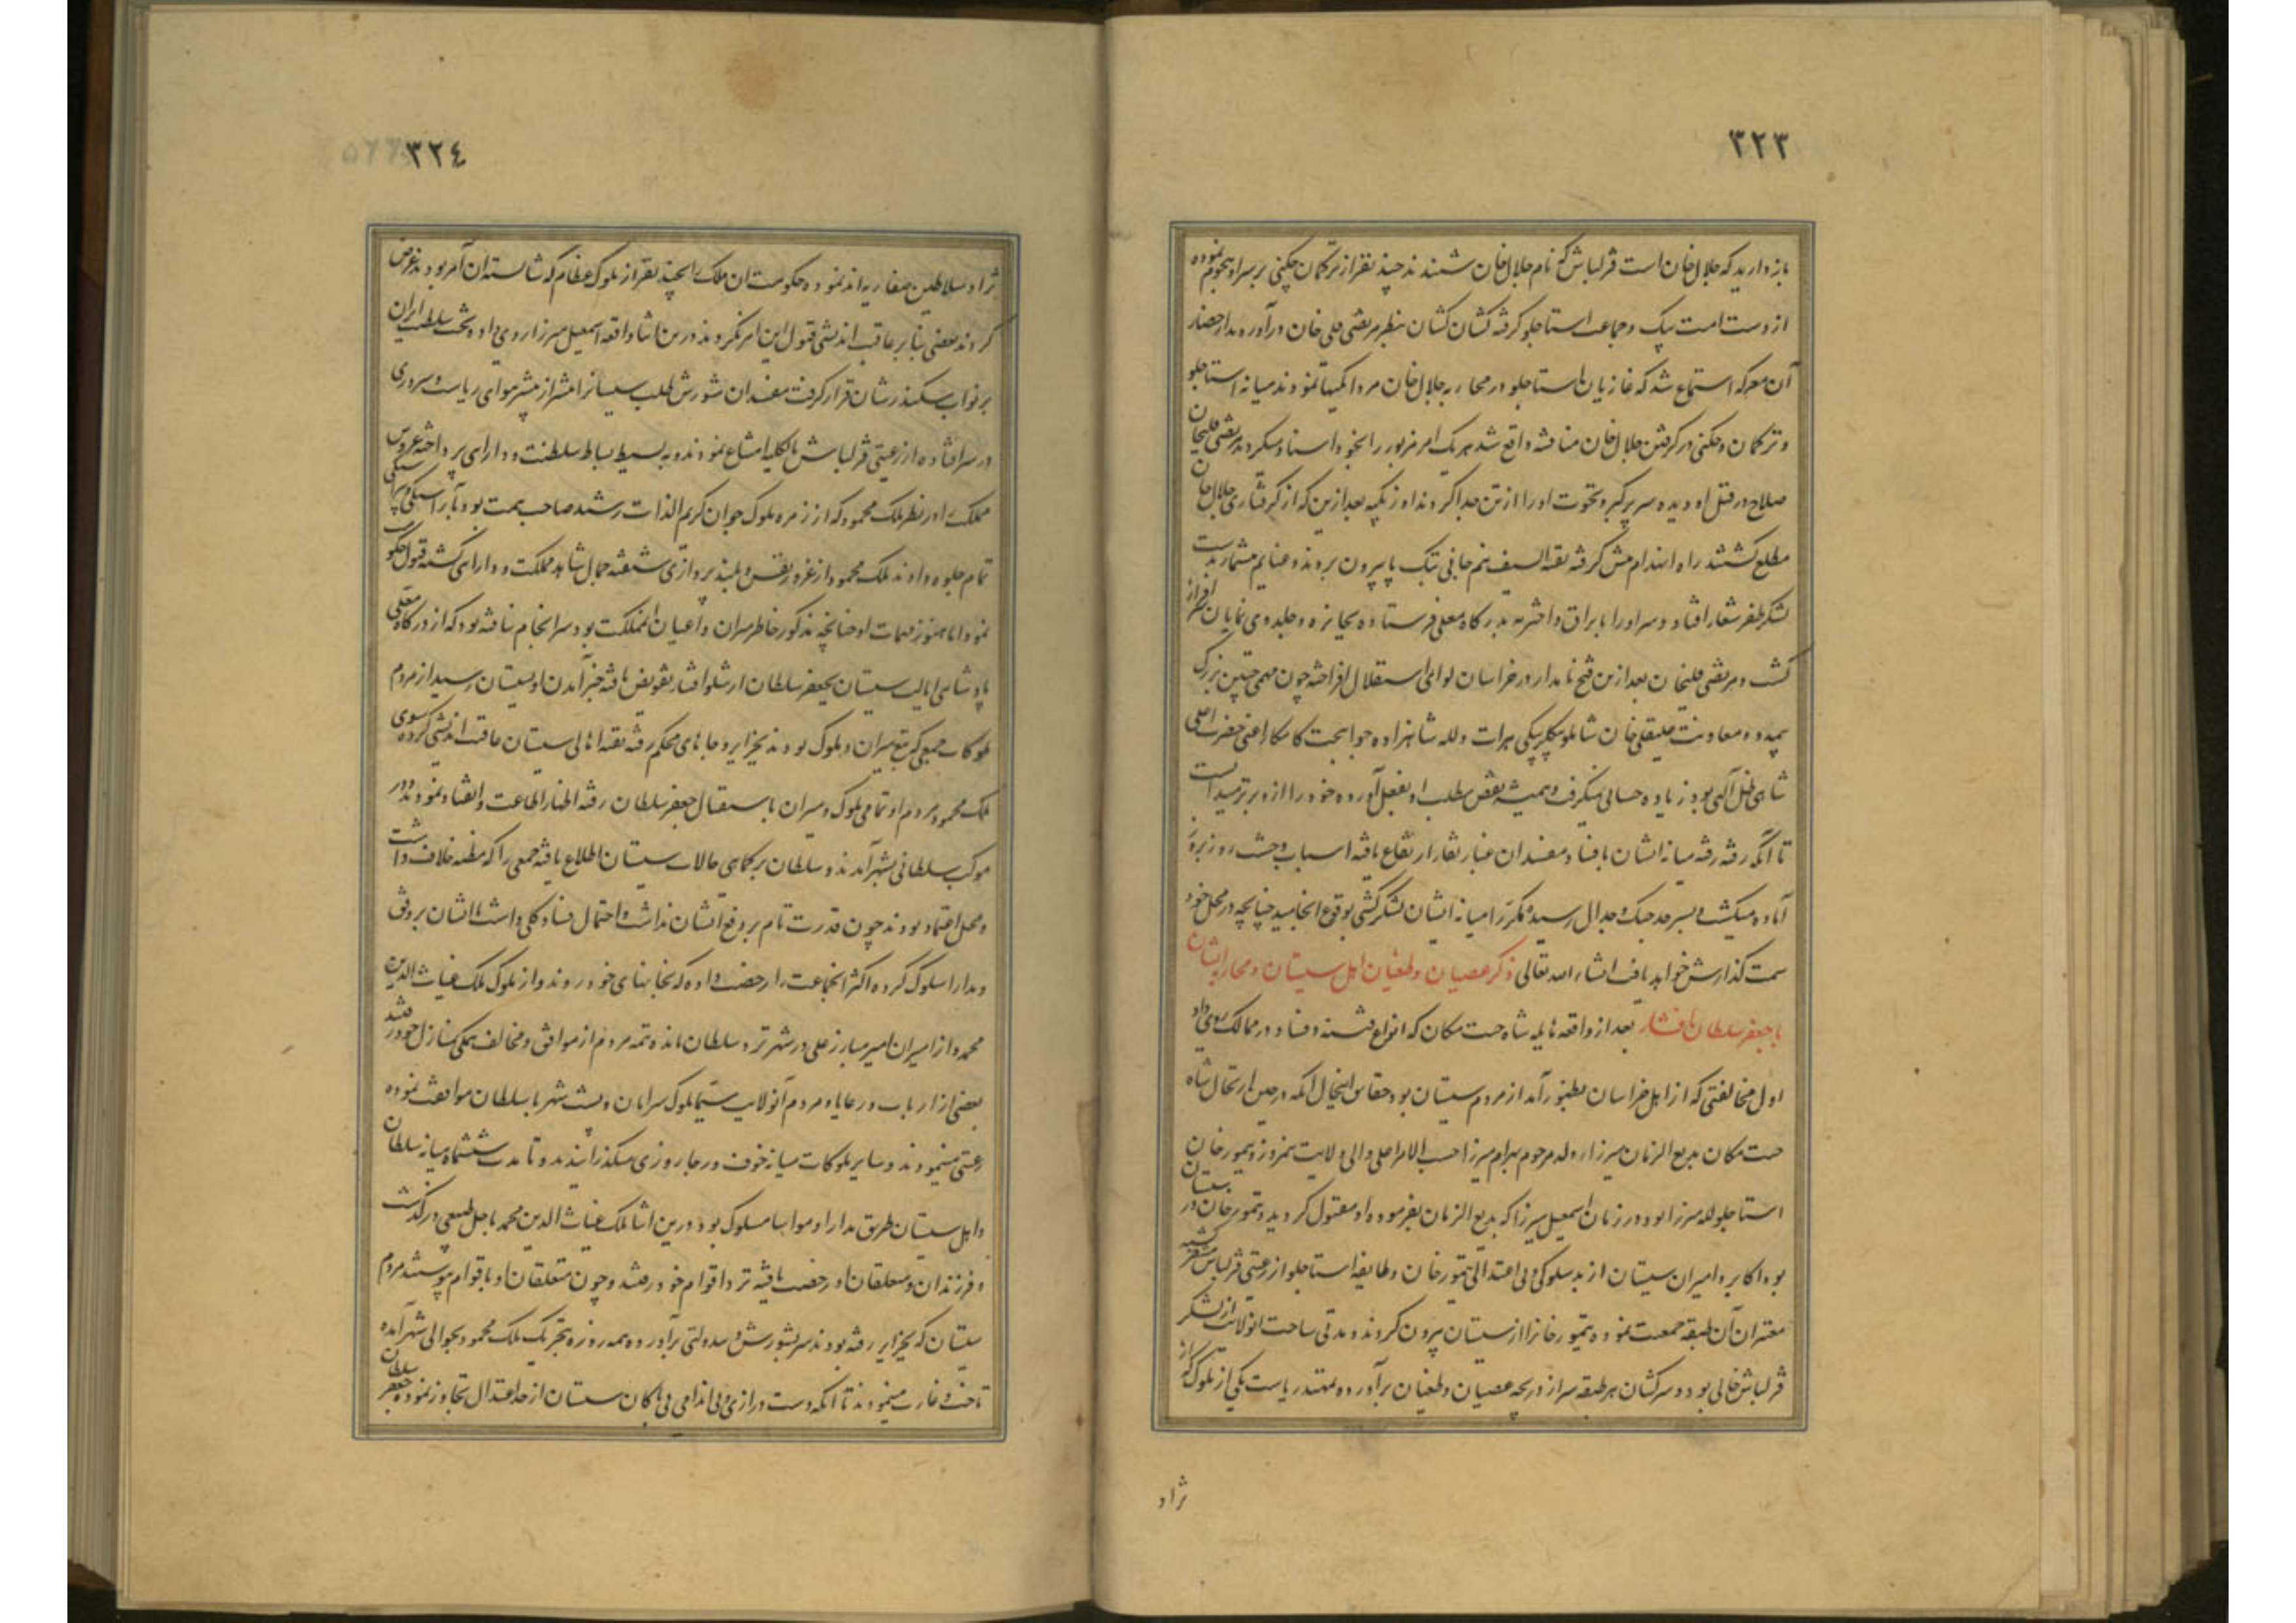 ۳۲۳
باز دارید که جلال خان است قزلباش که نام جلال خان شنیدند چند نفر از ترکمان چکنی بر سر او هجوم نموده
از دست امت بیک و جماعت استاجلو گرفته کشان کشان بنظر مرتضی قلی خان درآورده بعد از احضار
آن معرکه استماع شد که غازیان استاجلو در محاربه جلال خان مردانگیها نمودند میانه استاجلو
و ترکمان و چکنی در گرفتن جلال خان مناقشه واقع شد هر یک امر مزبور را بخود اسناد میکردند مرتضی قلیخان
صلاح در قتل او دیده سر پر کبر و نخوت او را از تن جدا کردند اوزبکیه بعد ازین که از گرفتاری جلال خان
مطلع گشتند راه انهزام پیش گرفته بقیة السیف نیم جانی بتک پا بیرون بردند و غنایم بیشمار بدست
لشکر ظفر شعار افتاد و سر او را با یراق و اختر مه بدرگاه معلی فرستاده بجایزه و جلدوی نمایان سرافراز
گشت و مرتضی قلیخان بعد ازین فتح نامدار در خراسان لوای استقلال افراخته چون مهمی چنین بزرگ
بیمدد و معاونت علیقلی خان شاملو بیگلربیگی هرات و لله شاهزاده جوانبخت کامکار اعنی حضرت اعلی
شاهی ظل الهی بود زیاده حسابی نمیگرفت و همیشه نقیض مطلب او بفعل آورده خود را ازو برتر میدانست
تا آنکه رفته رفته میانه ایشان بافساد مفسدان غبار نقار ارتفاع یافته اسباب وحشت روز بروز
آماده میگشت و بسرحد جنگ و جدال رسیده مکرر میانه ایشان لشکرکشی بوقوع انجامید چنانچه در محل خود
سمت گذارش خواهد یافت انشاء الله تعالی ذکر عصیان و طغیان اهل سیستان و محاربه ایشان
با جعفر سلطان افشار بعد از واقعه هایله شاه جنت مکان که انواع فتنه و فساد در ممالک روی داد
اول مخالفتی که از اهل خراسان بظهور آمد از مردم سیستان بود حقایق اینحال آنکه در حین ارتحال شاه
جنت مکان بدیع الزمان میرزا ولد مرحوم بهرام میرزا حسب الامر اعلی والی ولایت نیمروز و تیمور خان
استاجلو لله میرزا بود در زمان اسمعیل میرزا که بدیع الزمان بفرموده او مقتول گردید و تیمور خان در سیستان
بود اکابر و امیران سیستان از بدسلوکی و بی اعتدالی تیمور خان و طایفه استاجلو از رعیتی قزلباش متنفر گشته
معتبران آن طبقه جمعیت نموده تیمور خانرا از سیستان بیرون کردند و مدتی ساحت آنولایت از لشکر
قزلباش خالی بود و سرکشان هر طبقه سر از دریچه عصیان و طغیان برآورده تمهید ریاست یکی از ملوک که از
نژاد
۳۲٤
نژاد سلاطین صفاریه اند نموده حکومت آن ملک را بچند نفر از ملوک عظام که شایسته آن امر بودند عرض
کردند بعضی بنابر عاقبت اندیشی قبول این امر نکردند درین اثنا واقعه اسمعیل میرزا روی داد و تخت سلطنت ایران
بر نواب سکندر شان قرار گرفت مفسدان شورش طلب سیستانرا بیشتر از پیشتر هوای ریاست و سروری
در سر افتاده از رعیتی قزلباش بالکلیه امتناع نمودند و به بسیط بساط سلطنت و دارای پرداخته عروس
مملکت را در نظر ملک محمود که از زمره ملوک جوان کریم الذات رشید صاحب همت بود بآراستگی و پیراستگی
تمام جلوه دادند ملک محمود از غرور نفس و بلند پروازی شیفته جمال شاهد مملکت و دارای گشته قبول حکومت
نمود اما هنوز مهمات او چنانچه مذکور خاطر سران و اعیان آنمملکت بود سرانجام نیافته بود که از درگاه معلی
پادشاهی ایالت سیستان بجعفر سلطان ارشلو افشار تفویض یافته خبر آمدن او بسیستان رسید از مردم
بلوکات جمعی که تبع میران و ملوک بودند بجزایر و جاهای محکم رفته بقیه اهالی سیستان عاقبت اندیشی کرده سوی
ملک محمود مردم او تمامی ملوک و میران باستقبال جعفر سلطان رفته اظهار اطاعت و انقیاد نمودند و در
موکب سلطانی بشهر آمدند و سلطان بر کماهی حالات سیستان اطلاع یافته جمعی را که مظنه خلاف داشت
و محل اعتماد نبودند چون قدرت تام بر دفع ایشان نداشت و احتمال فساد کلی داشت با ایشان برفق
و مدارا سلوک کرده اکثر آنجماعت را رخصت داده که بخانهای خود روند و از ملوک ملک غیاث الدین
محمد و از امیران امیر مبارز علی در شهر نزد سلطان مانده تتمه مردم از موافق و مخالف همگی بمنازل خود رفتند
بعضی از ارباب و رعایا و مردم آنولایت سیما بلوک سرابان و پشت شهر با سلطان موافقت نموده
رعیتی مینمودند و سایر بلوکات میانه خوف و رجا روزی میگذرانیدند و تا مدت ششماه میانه سلطان
و اهل سیستان طریق مدارا و مواسا مسلوک بود درین اثنا ملک غیاث الدین محمد باجل طبیعی درگذشت
و فرزندان و متعلقان او رخصت یافته نزد اقوام خود رفتند و چون متعلقان او باقوام پیوستند مردم
سیستان که بجزایر رفته بودند سر بشورش و بیدولتی برآورده همه روزه بتحریک ملک محمود بحوالی شهر آمده
تاخت و غارت مینمودند تا آنکه دست درازی و بی اندامی بی باکان سیستان از حد اعتدال تجاوز نموده جعفر سلطان